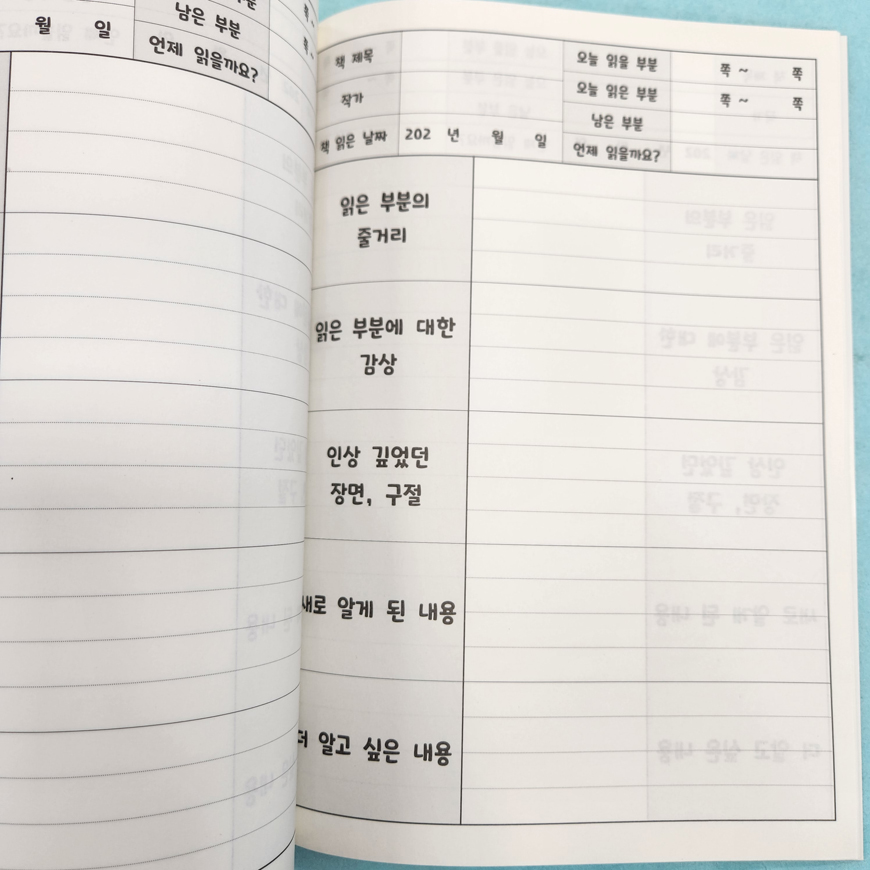 월 일
남은 부분
언제 읽을까요?
쪽 ~
쪽 ~
책 제목
오늘 읽을 부분 쪽 ~ 쪽
작가
오늘 읽은 부분 쪽 ~ 쪽
남은 부분
책 읽은 날짜 202 년 월 일
언제 읽을까요?
읽은 부분의
줄거리
읽은 부분에 대한
감상
인상 깊었던
장면, 구절
새로 알게 된 내용
더 알고 싶은 내용